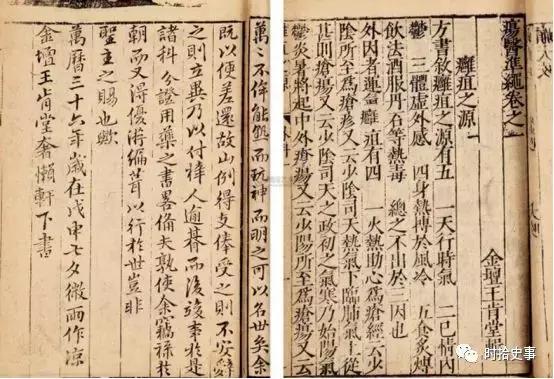 瘍醫準繩卷之
金壇王肯堂
癰疽之源
方書敘癰疽之源有五 一天行時氣 二七情內
鬱 三體虛外感 四身熱搏於風冷 五食炙煿
飲法酒服丹石等熱毒 總之不出於三因也
外因者運氣癰疽有四 一火熱助心為瘡經云少
陰所至為瘡疹又云少陰司天熱氣下臨肺氣上從
甚則瘡瘍又云少陰司天之政初之氣寒乃始陽氣
炎暑將起中外瘡瘍又云少陽所至為瘡瘍又云
萬々不侔能而玩神而明之可以名世矣余
既以便差還故山例得支俸受之則不安辭
之則立異乃以付梓人逾朞而後竣事於是
諸科分證用藥之書畧備矣孰使余竊祿於
朝而又得優游編葺以行於世豈非
聖主之賜也歟
萬曆三十六年歲在戊申七夕微雨作涼
金壇王肯堂奢懶軒下書
时拾史事